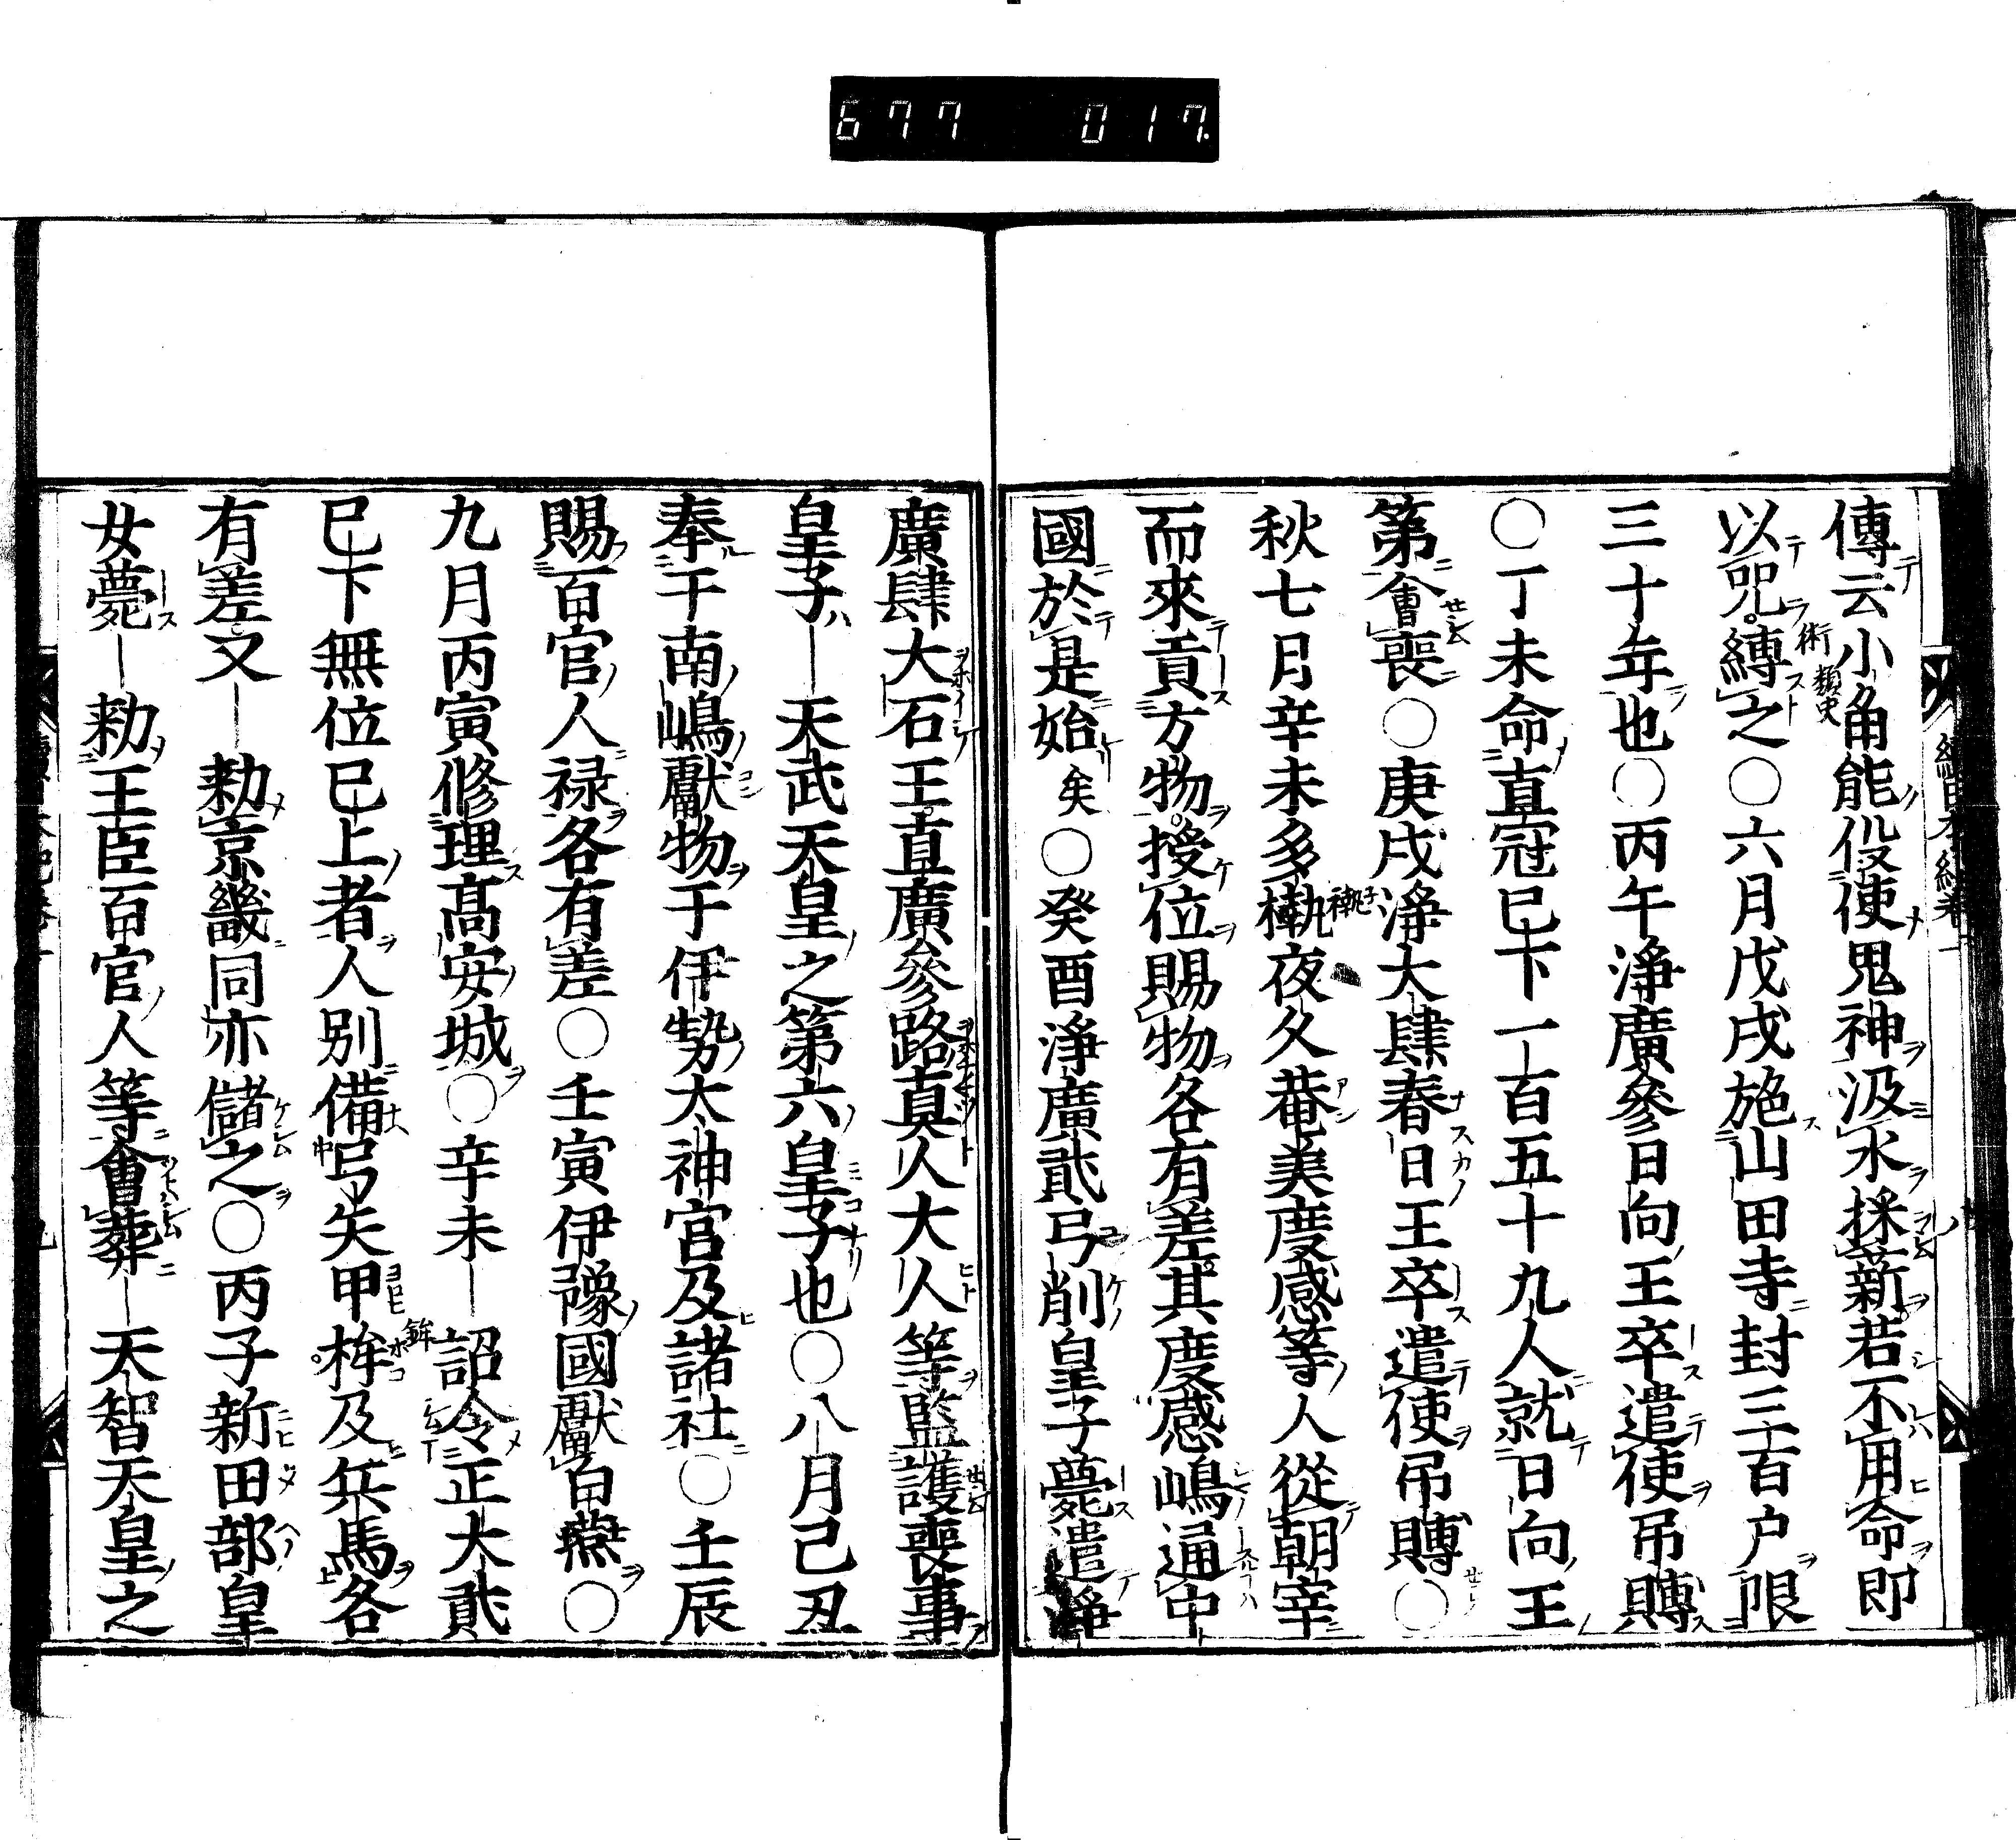 677 017
傳云小角能役使鬼神汲水採薪若不用命即
以咒縛之〇六月戊戌施山田寺封三百户限
三十年也〇丙午淨廣參日向王卒遣使吊賻
〇丁未命直冠已下一百五十九人就日向王
第會喪〇庚戌淨大肆春日王卒遣使吊賻〇
秋七月辛未多褹夜久菴美度感等人從朝宰
而來貢方物授位賜物各有差其度感嶋通中
國於是始矣〇癸酉淨廣貳弓削皇子薨遣淨
廣肆大石王直廣參路真人大人等監護喪事
皇子天武天皇之第六皇子也〇八月己丑
奉于南嶋獻物于伊勢太神宮及諸社〇壬辰
賜百官人祿各有差〇壬寅伊豫國獻白燕〇
九月丙寅修理高安城〇辛未詔令正大貳
已下無位已上者人別備弓矢甲桙及兵馬各
有差又勅京畿同亦儲之〇丙子新田部皇
女薨勅王臣百官人等會葬天智天皇之